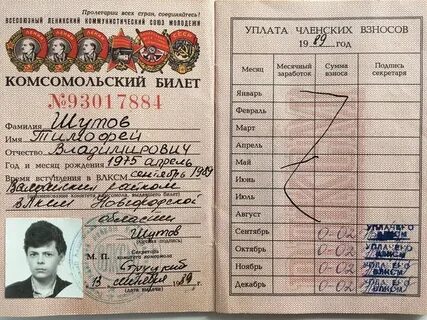 Пролетарии всех стран, соединяйтесь!
ВСЕСОЮЗНЫЙ ЛЕНИНСКИЙ КОММУНИСТИЧЕСКИЙ СОЮЗ МОЛОДЕЖИ
КОМСОМОЛЬСКИЙ БИЛЕТ
№93017884
Фамилия Шутов
Имя Тимофей
Отчество Владимирович
Год и месяц рождения 1975 апрель
Время вступления в ВЛКСМ сентябрь 1989
Валдайский райком
ВЛКСМ Новгородской
области
Шутов
(личная подпись)
М. П.
13 сентября 1989
УПЛАТА ЧЛЕНСКИХ ВЗНОСОВ
1989 год
Месяц Месячный заработок Сумма взноса Подпись секретаря
Январь
Февраль
Март
Апрель
Май
Июнь
Июль
Август
Сентябрь 0-02 УПЛАЧЕНО ВЛКСМ
Октябрь 0-02 УПЛАЧЕНО ВЛКСМ
Ноябрь 0-02 УПЛАЧЕНО ВЛКСМ
Декабрь 0-02 УПЛАЧЕНО ВЛКСМ